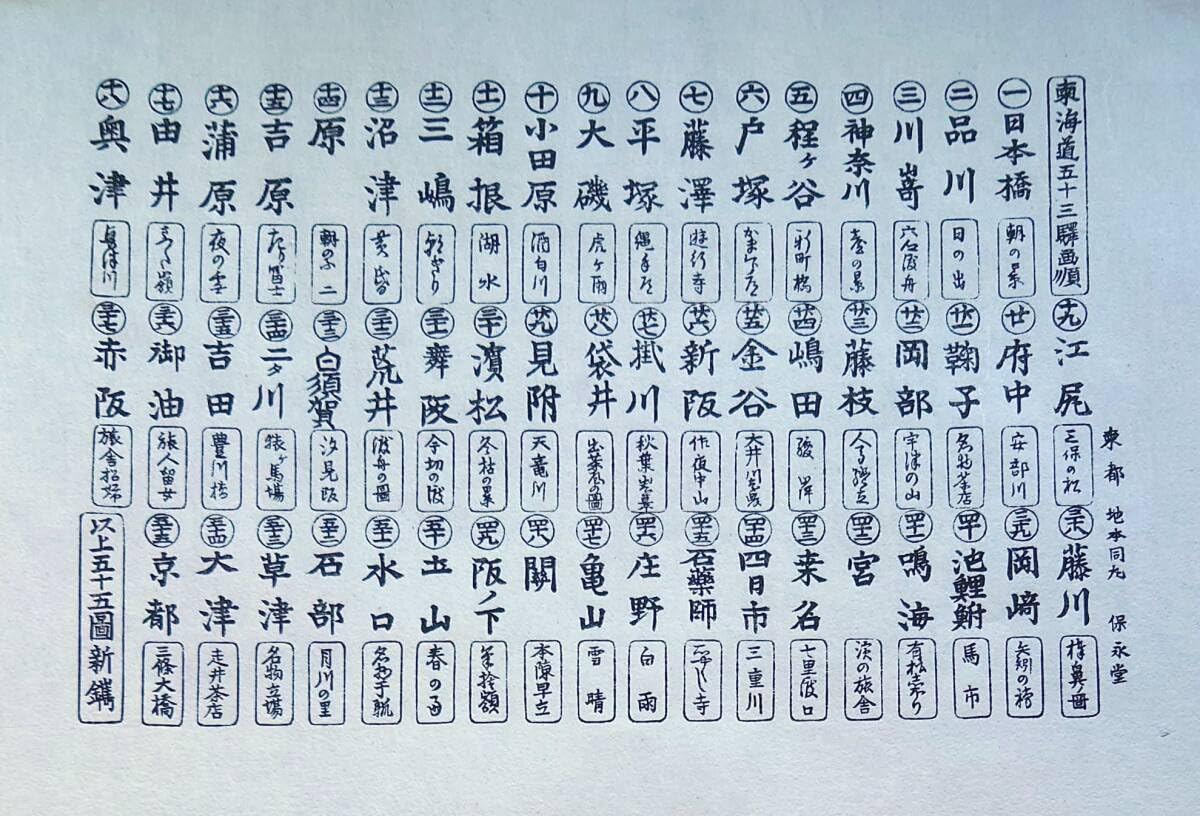 東海道五十三驛画順
一 日本橋 朝の景
二 品川 日の出
三 川嵜 六合渡舟
四 神奈川 臺の景
五 程ヶ谷 新町橋
六 戸塚
七 藤澤 遊行寺
八 平塚 縄手道
九 大磯 虎ヶ雨
十 小田原 酒匂川
十一 箱根 湖水
十二 三嶋 朝きり
十三 沼津 黄昏
十四 原 朝のふ二
十五 吉原 左り冨士
十六 蒲原 夜の雪
十七 由井 さつた嶺
十八 奥津 奥津川
十九 江尻 三保の松
廿 府中 安部川
廿一 鞠子 名物茶店
廿二 岡部 宇津の山
廿三 藤枝 人馬継立
廿四 嶋田 駿岸
廿五 金谷 大井川遠岸
廿六 新阪 作夜中山
廿七 掛川 秋葉
廿八 袋井 出茶屋の圖
廿九 見附 天竜川
三十 濱松 冬枯の景
三十一 舞阪 今切の渡
三十二 荒井 渡舟の圖
三十三 白須賀 汐見阪
三十四 二タ川 猿ヶ馬場
三十五 吉田 豊川橋
三十六 御油 旅人留女
三十七 赤阪 旅舎招婦
三十八 藤川 棒鼻
三十九 岡﨑 矢矧の橋
四十 池鯉鮒 馬市
四十一 鳴海 有松しぼり
四十二 宮
四十三 桒名 七里渡口
四十四 四日市 三重川
四十五 石藥師 石やくし寺
四十六 庄野 白雨
四十七 亀山 雪晴
四十八 關 本陳早立
四十九 阪ノ下 筆捨嶺
五十 土山 春の雨
五十一 水口 名物干瓢
五十二 石部 目川の里
五十三 草津 名物立場
五十四 大津 走井茶店
五十五 京都 三條大橋
以上五十五圖新鐫
東都 地本同丸 保永堂